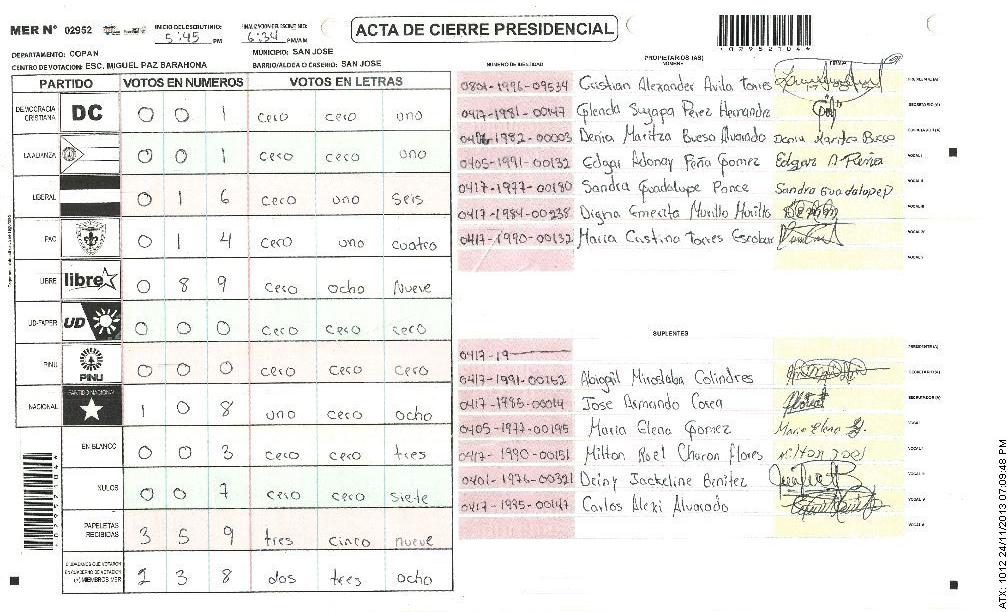 MER N° 02952
INICIO DEL ESCRUTINIO: 5:45 PM
FINALIZACION DEL ESCRUTINIO: 6:34 PM/AM
ACTA DE CIERRE PRESIDENCIAL
DEPARTAMENTO: COPAN
MUNICIPIO: SAN JOSE
CENTRO DE VOTACION: ESC. MIGUEL PAZ BARAHONA
BARRIO/ALDEA O CASERIO: SAN JOSE
PARTIDO VOTOS EN NUMEROS VOTOS EN LETRAS
DEMOCRACIA CRISTIANA DC 0 0 1 cero cero uno
LA ALIANZA 0 0 1 cero cero uno
LIBERAL 0 1 6 cero uno seis
PAC 0 1 4 cero uno cuatro
LIBRE libre 0 8 9 cero ocho nueve
UD-FAPER UD 0 0 0 cero cero cero
PINU PINU 0 0 0 cero cero cero
NACIONAL PARTIDO NACIONAL 1 0 8 uno cero ocho
EN BLANCO 0 0 3 cero cero tres
NULOS 0 0 7 cero cero siete
PAPELETAS RECIBIDAS 3 5 9 tres cinco nueve
CIUDADANOS QUE VOTARON EN CUADERNO DE VOTACION (+) MIEMBROS MER 2 3 8 dos tres ocho
NUMERO DE IDENTIDAD
PROPIETARIOS (AS)
NOMBRE
FIRMA
0801-1996-09534 Cristian Alexander Avila Torres
0417-1981-00147 Glenda Suyapa Perez Hernandez SECRETARIO (A)
1982-00003 Denia Maritza Bueso Alvarado Denia Maritza Bueso
0405-1991-00132 Edgar Adonay Peña Gomez Edgar A Peña VOCAL I
0417-1977-00180 Sandra Guadalupe Ponce Sandra Guadalupe P VOCAL II
0417-1984-00238 Digna Emerita Murillo Murillo VOCAL III
0417-1990-00132 Maria Cristina Torres Escobar VOCAL IV
VOCAL V
SUPLENTES
0417-19 PRESIDENTE (A)
0417-1991-00162 Abigail Miroslaba Colindres SECRETARIO (A)
0417-1985-00014 Jose Armando Corea ESCRUTADOR (A)
0405-1977-00195 Maria Elena Gomez Maria Elena G. VOCAL I
0417-1990-00151 Milton Roel Charon flores Milton Joel
0401-1976-00321 Deiny Jackeline Benitez
0417-1995-00147 Carlos Alexi Alvarado
ATX: 1012 24/11/2013 07:09:48 PM